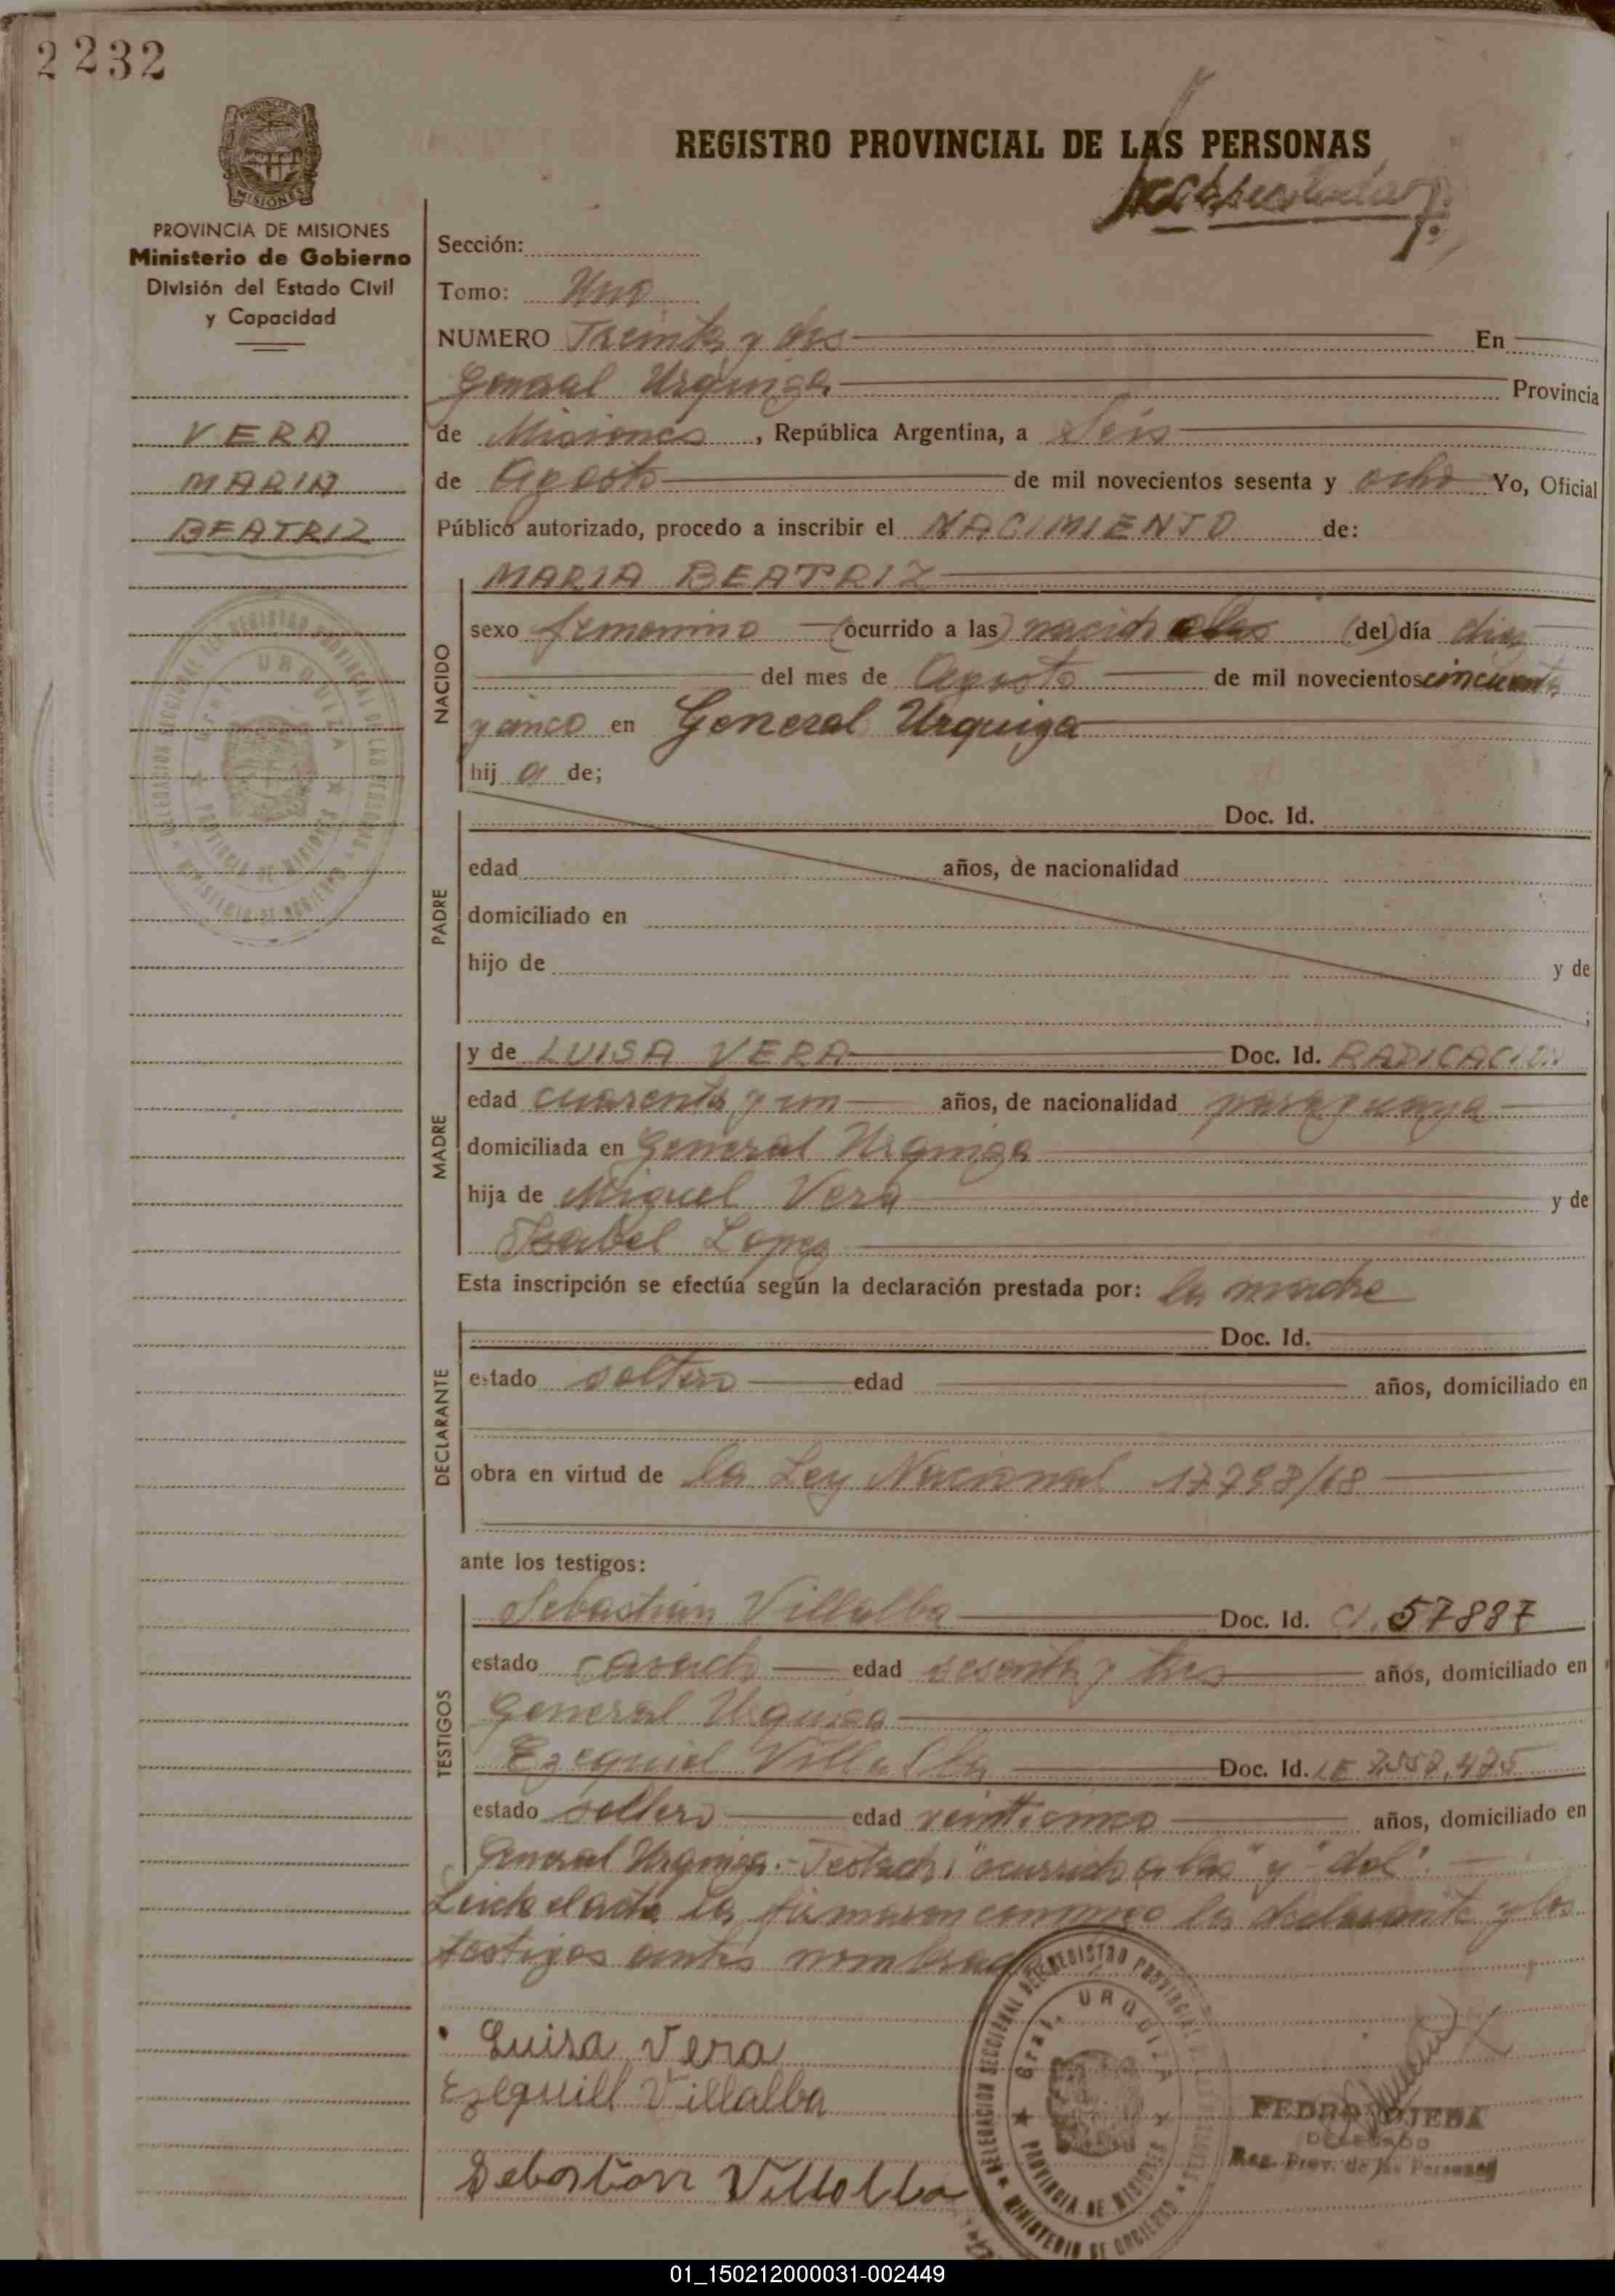 2232
MISIONES
PROVINCIA DE MISIONES
Ministerio de Gobierno
División del Estado Civil
y Capacidad
VERA
MARIA
BEATRIZ
REGISTRO PROVINCIAL DE LAS PERSONAS
Sección:
Tomo: Uno
NUMERO Treinta y dos En
General Urquiza Provincia
de Misiones, República Argentina, a Seis
de Agosto de mil novecientos sesenta y ocho Yo, Oficial
Público autorizado, procedo a inscribir el NACIMIENTO de:
NACIDO
MARIA BEATRIZ
sexo femenino (ocurrido a las) (del) día diez
del mes de Agosto de mil novecientos cincuenta
y cinco en General Urquiza
hij a de;
PADRE
Doc. Id.
edad años, de nacionalidad
domiciliado en
hijo de y de
;
MADRE
y de LUISA VERA Doc. Id. RADICACION
edad cuarenta y un años, de nacionalidad paraguaya
domiciliada en General Urquiza
hija de Miguel Vera y de
Isabel Lopez
Esta inscripción se efectúa según la declaración prestada por: la madre
DECLARANTE
Doc. Id.
estado soltera edad años, domiciliado en
obra en virtud de la Ley Nacional 17798/68
ante los testigos:
TESTIGOS
Sebastian Villalba Doc. Id. CI. 57887
estado casado edad sesenta y tres años, domiciliado en
General Urquiza
Ezequiel Villalba Doc. Id. LE 7.557.475
estado soltero edad veinticinco años, domiciliado en
General Urquiza.- Testado: "ocurrido a las" y "del".
Leida el acta la firmaron conmigo la declarante y los
testigos antes nombrados
Luisa Vera
Ezequill Villalba
Sebastian Villalba
DELEGACION SECCIONAL DEL REGISTRO PROVINCIAL DE LAS PERSONAS
Gral. URQUIZA
PROVINCIA DE MISIONES
MINISTERIO DE GOBIERNO
PEDRO OJEDA
DELEGADO
Reg. Prov. de las Personas
01_150212000031-002449